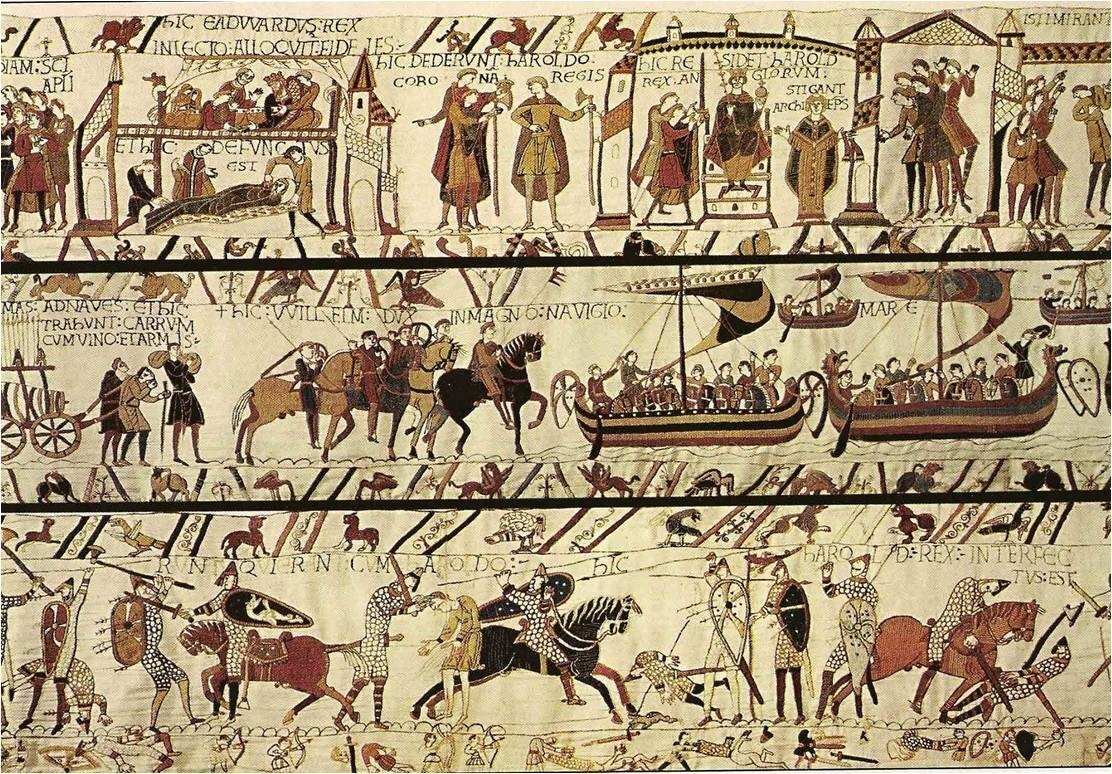 HIC EADWARDUS: REX
IN LECTO: ALLOQVIT: FIDELES:-
DIAM: SCI
APLI
ET HIC: DEFUNCTUS
EST
HIC DEDERUNT: HAROLDO:
CORONA REGIS
HIC RESIDET: HAROLD
REX: ANGLORVM:
STIGANT
ARCHIEPS
ISTI MIRANT
MAS: AD NAVES: ET HIC
TRAHUNT: CARRVM
CVM VINO: ET ARMIS:-
+ HIC: VVILLELM: DVX IN MAGNO: NAVIGIO:
MARE
RVNT QVI ERANT: CVM HAROLDO:-
HIC HAROLD: REX: INTERFEC
TUS: EST